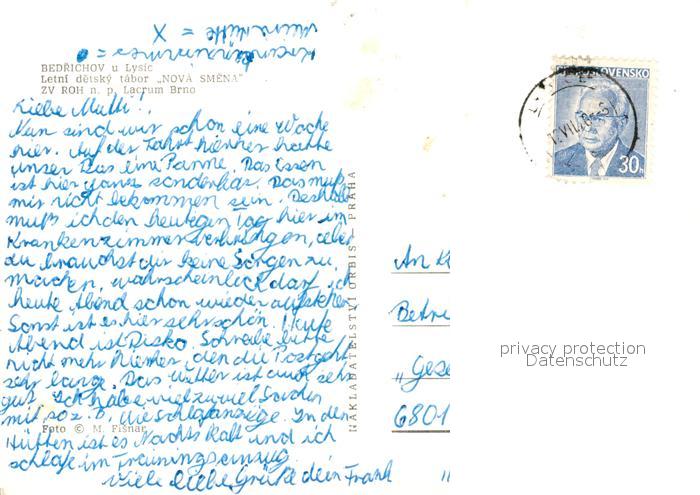 Krankenzimmer = o
meine Hütte = X
BEDŘICHOV u Lysic
Letní dětský tábor „NOVÁ SMĚNA"
ZV ROH n. p. Lacrum Brno
Liebe Mutti!
Nun sind wir schon eine Woche
hier. Auf der Fahrt hierher hatte
unser Bus eine Panne. Das Essen
ist hier ganz sonderbar. Das muß
mir nicht bekommen sein. Deshalb
muß ich den heutigen Tag hier im
Krankenzimmer verbringen, aber
du brauchst dir keine Sorgen zu
machen, wahrscheinlich darf ich
heute Abend schon wieder aufstehen
Sonst ist es hier sehr schön. Heute
Abend ist Disko. Schreibe bitte
nicht mehr hierher, den die Post geht
sehr lange. Das Wetter ist auch sehr
gut. Ich habe viel zu viel Sachen
mit, so z. B. die Schlafanzüge. In den
Foto © M. Fišnar
Hütten ist es Nachts kalt und ich
schlafe im Trainingsanzug.
Viele liebe Grüße dein Frank
NAKLADATELSTVÍ ORBIS - PRAHA
SLOVENSKO
30h
An
Betri
„Gese
6801
privacy protection
Datenschutz